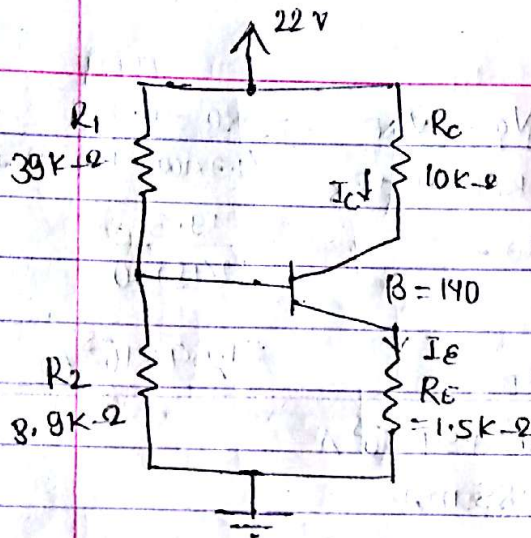 22 V
R1
39K-Ω
Rc
10K-Ω
Ic↓
β = 140
IE
R2
3.9K-Ω
RE
= 1.5K-Ω